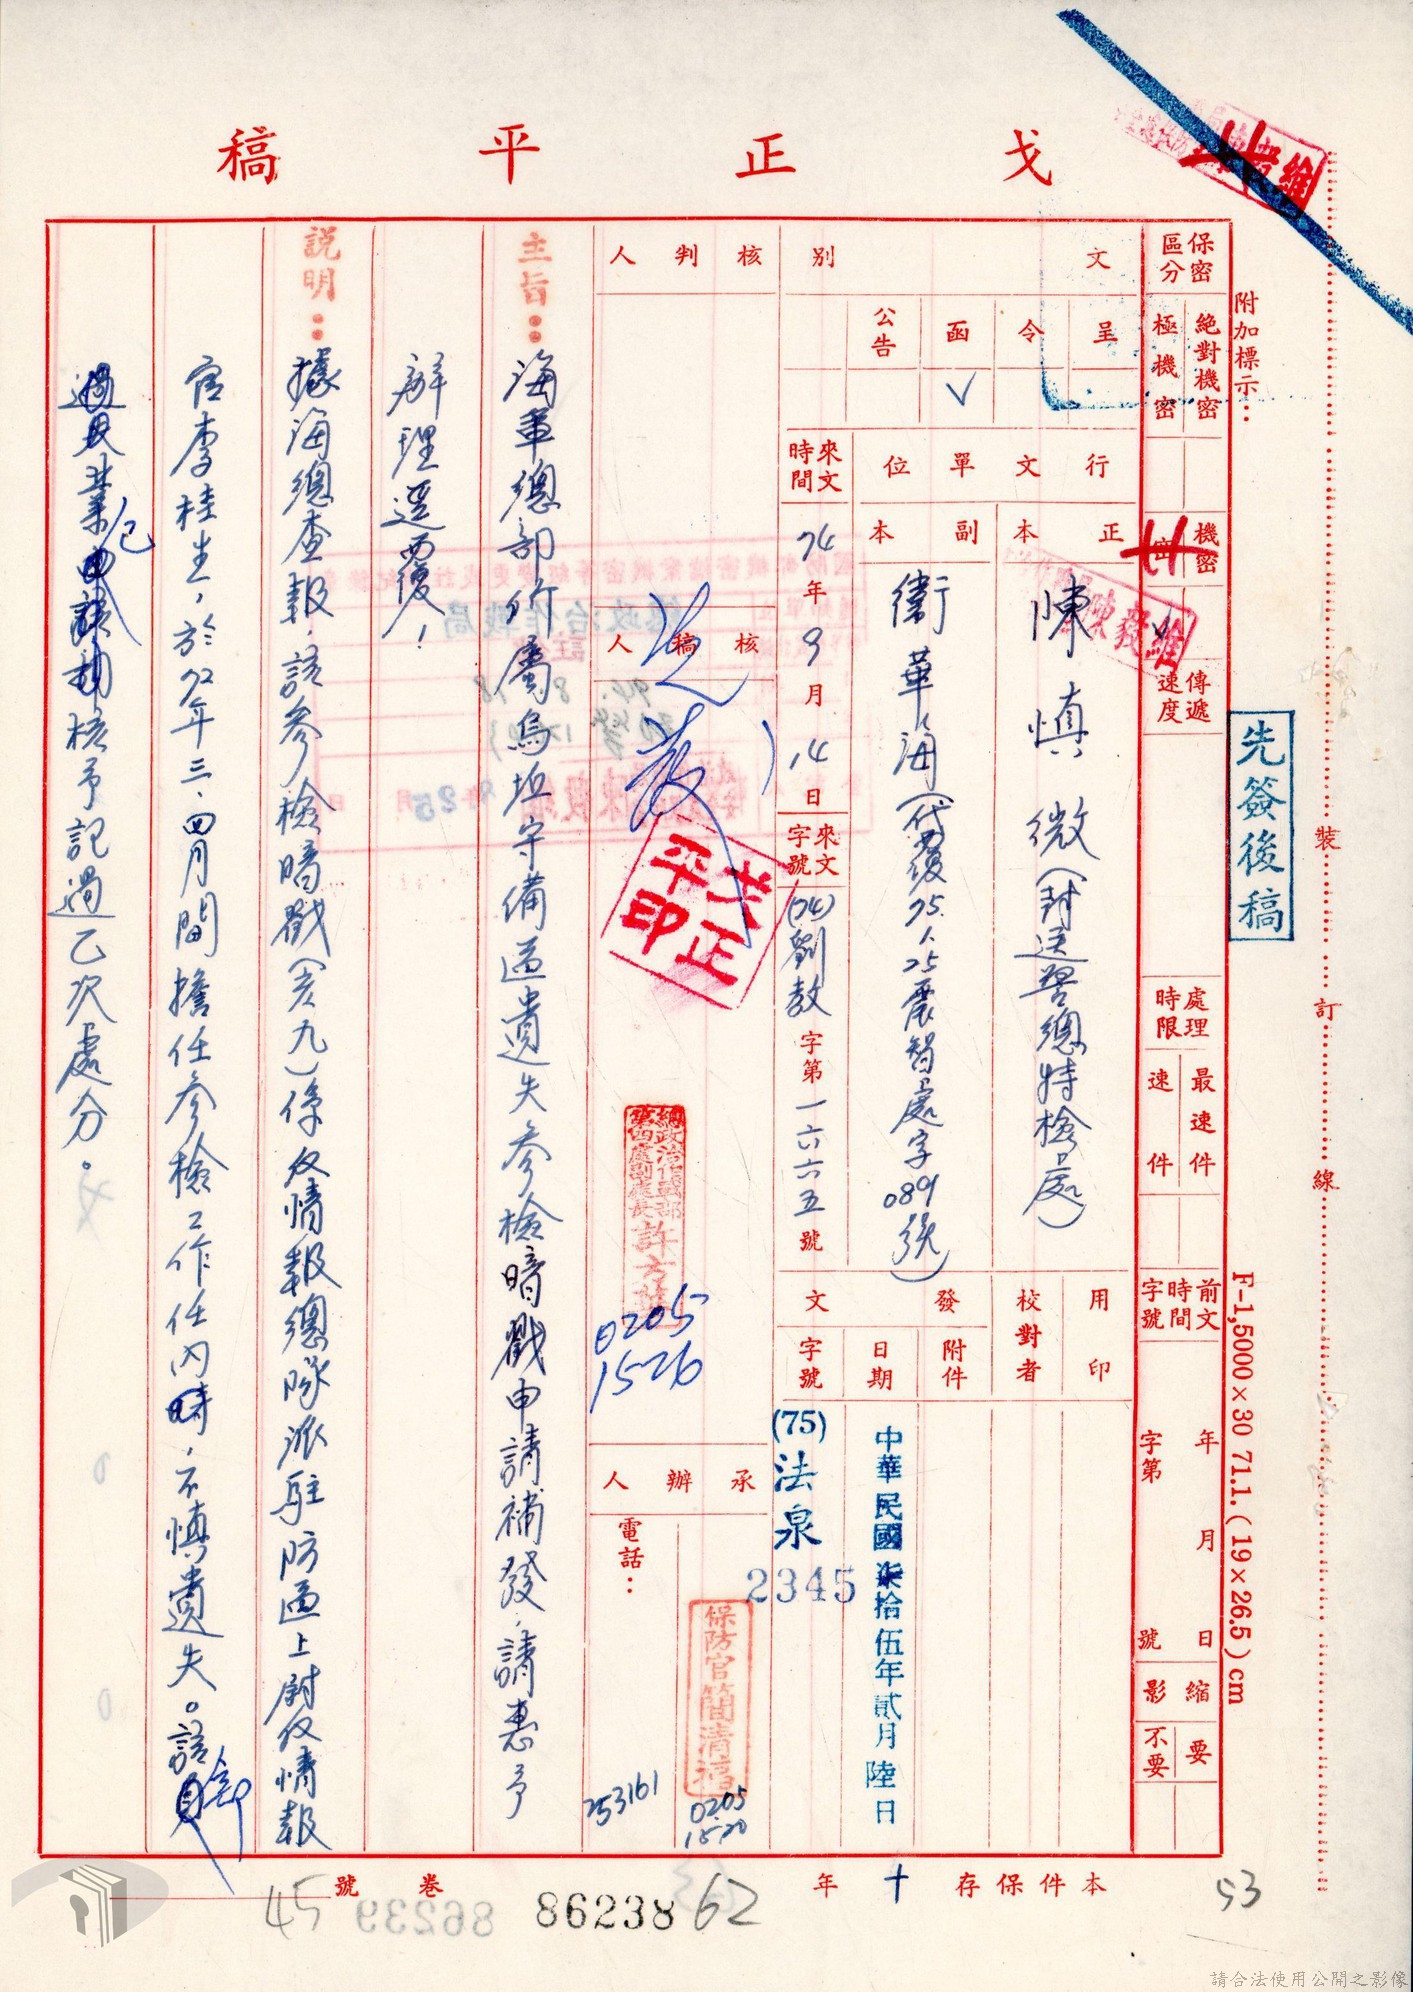 戈正平稿
附加標示：
F-1,5000×30 71.1.(19×26.5)cm
裝訂線
先簽後稿
保密區分
絕對機密
極機密
機密
密
傳遞速度
處理時限
最速件
速件
前文時間字號
年月日
字第號
縮影
要
不要
文別
呈
令
函 ✓
公告
行文單位
正本
陳慎微（封送警總特檢處）
副本
衛華海（代覆75.1.25展智處字0891號）
用印
校對者
發文
附件
日期
中華民國柒拾伍年貳月陸日
字號
(75)法泉
2345
來文時間
74年9月14日
來文字號
(74)劉敖字第一六六五號
核判人
核稿人
戈正平印
總政治作戰部第四處副處長許方華
0205
1526
承辦人
保防官簡清福
0205
1520
電話：
253161
主旨：海軍總部所屬烏坵守備區遺失參檢暗戳申請補發，請惠予
辦理逕覆！
說明：據海總查報，該參檢暗戳（亥九）係反情報總隊派駐防區上尉反情報
官李桂生，於72年三、四月間擔任參檢工作任內時，不慎遺失。該
已核予記過乙次處分。
本件保存十年
卷號
53
86238
62
45
86239
請合法使用公開之影像